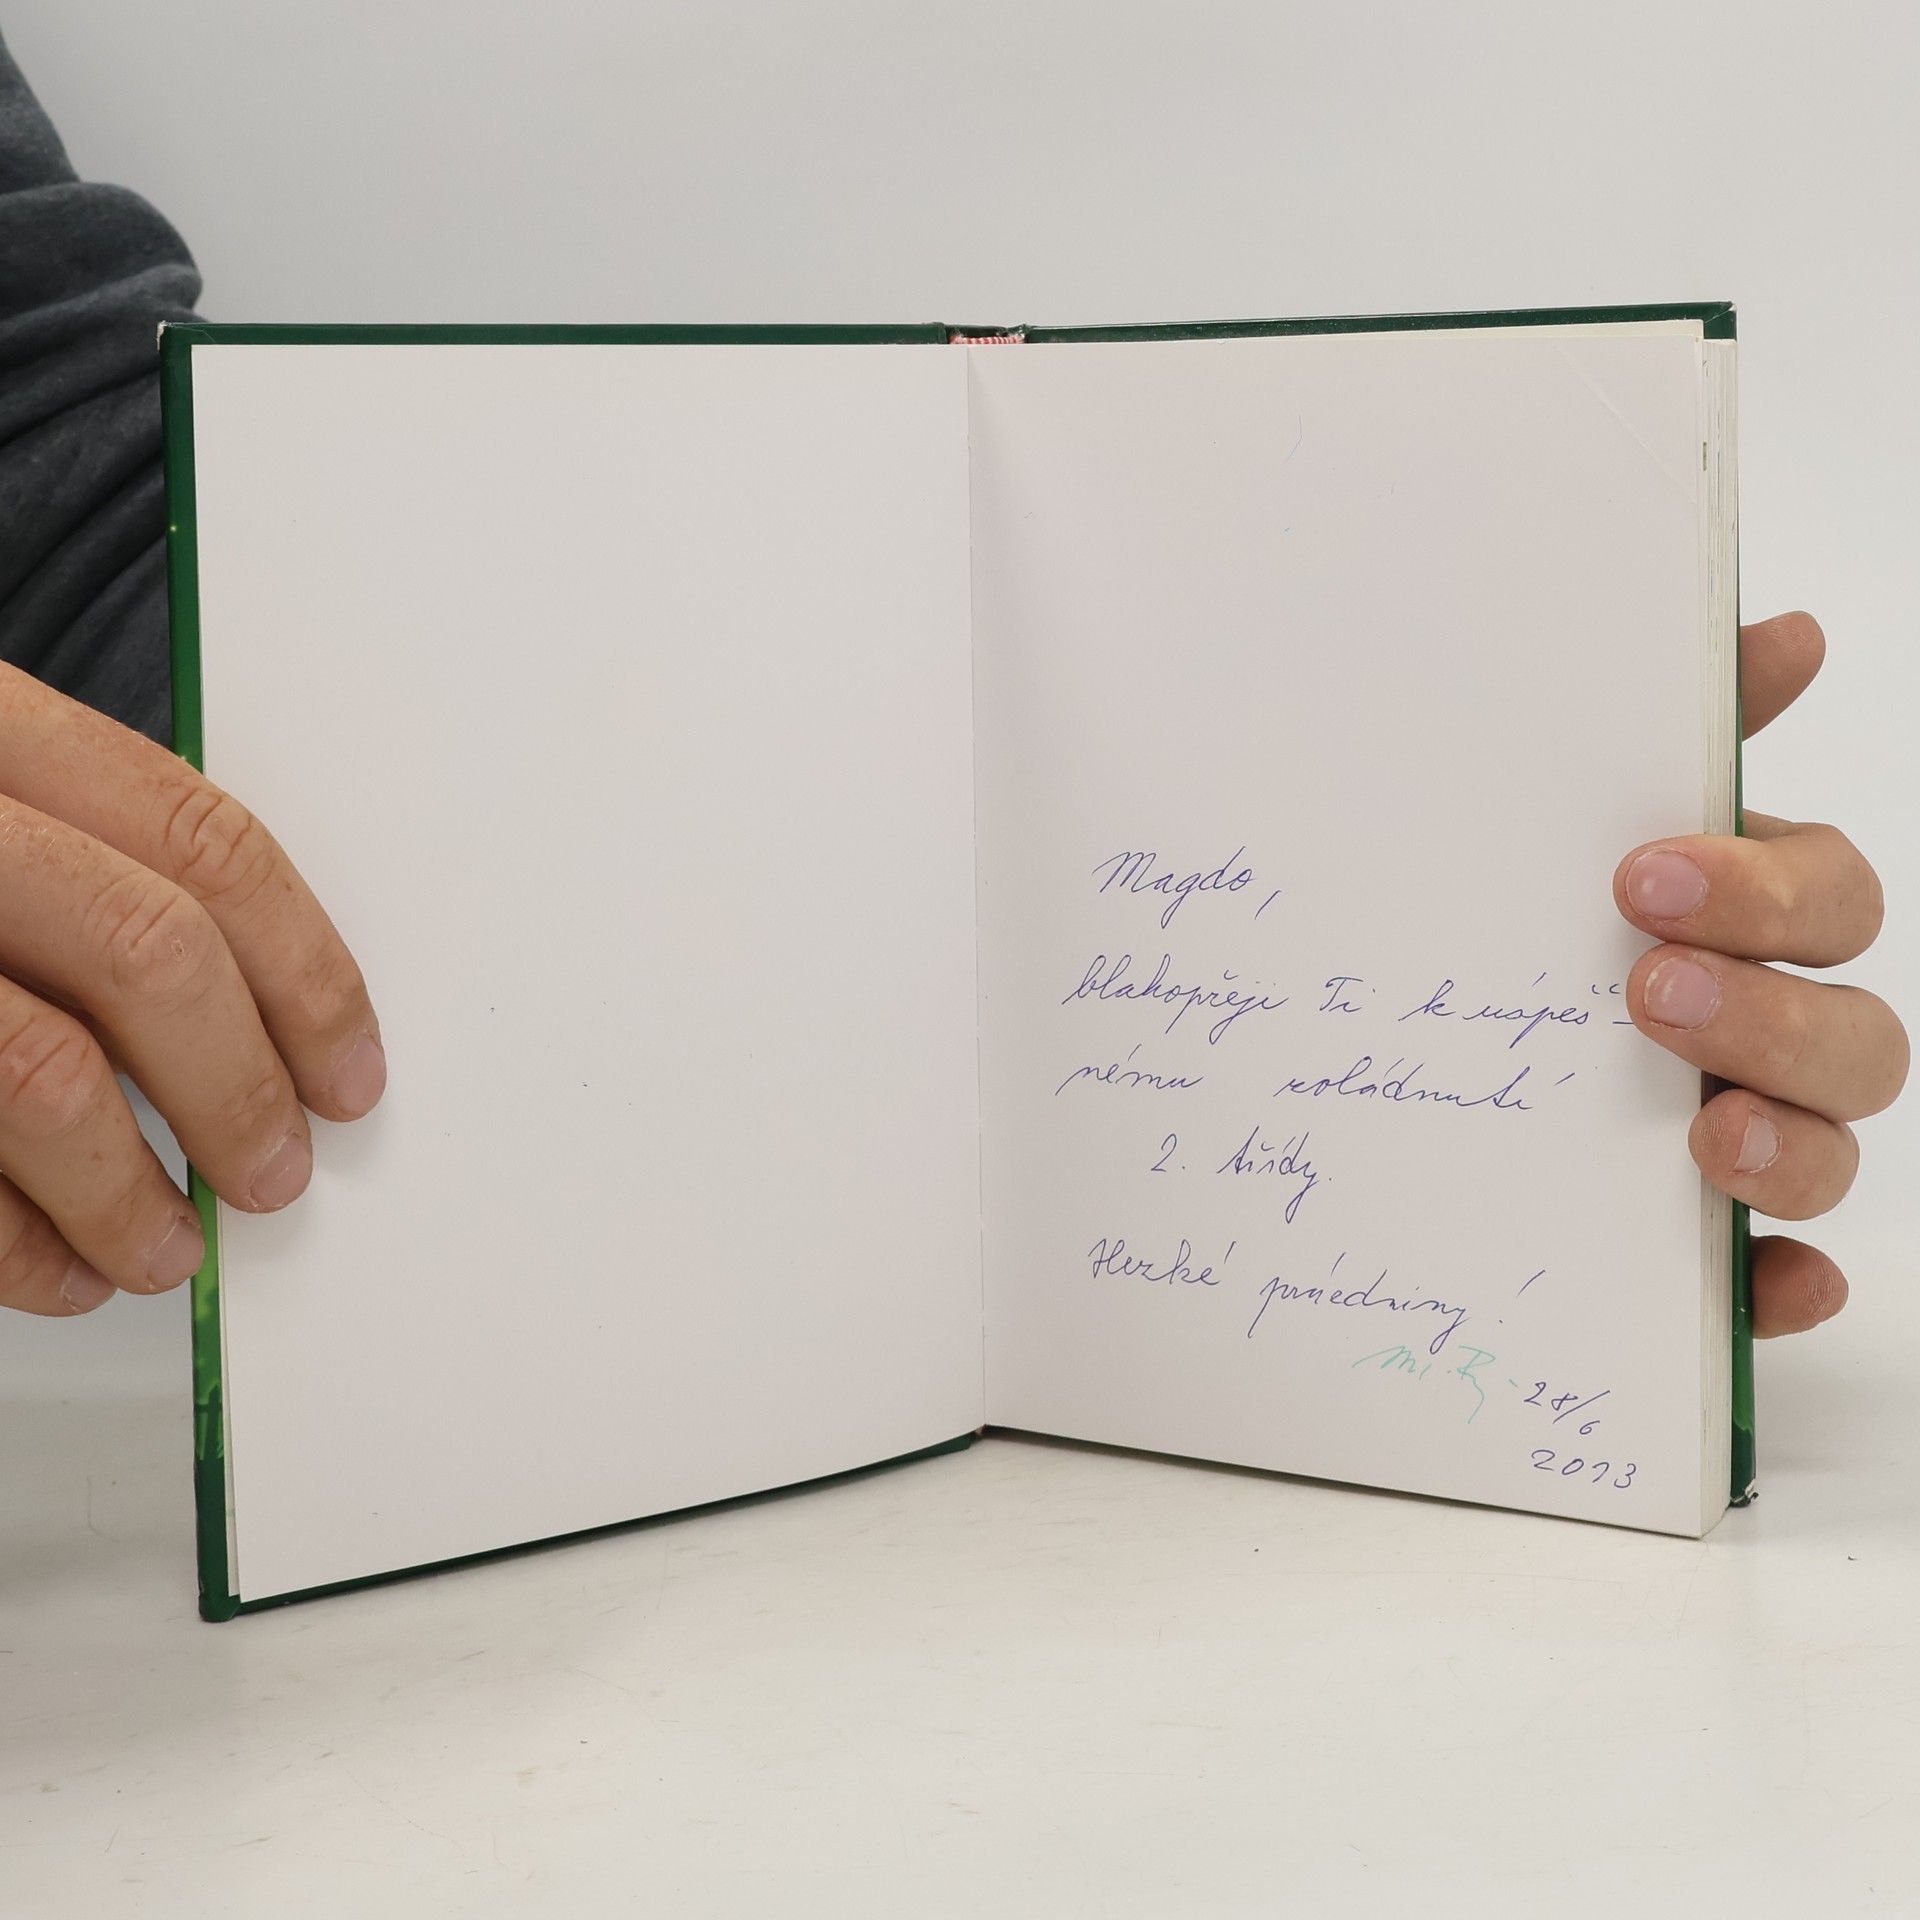 Magdo,
blahopřeji Ti k úspěš-
nému zvládnutí
2. třídy.
Hezké prázdniny!
28/6
2013